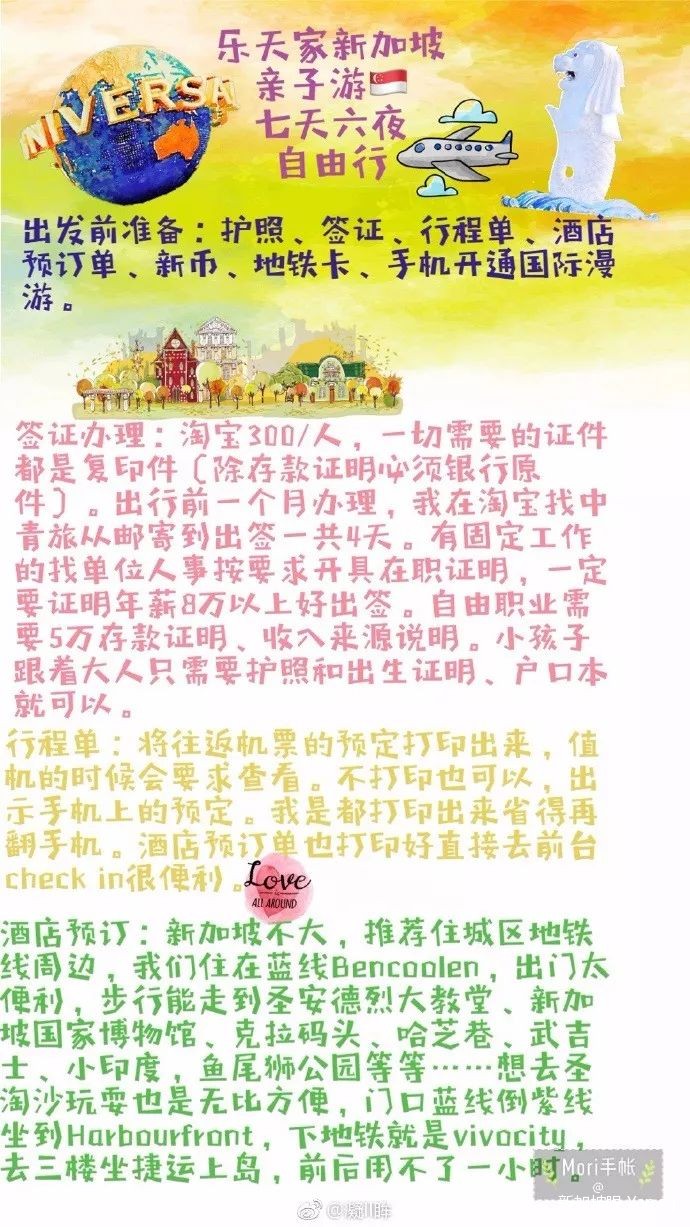 乐天家新加坡
亲子游🇸🇬
七天六夜
自由行
UNIVERSAL
出发前准备：护照、签证、行程单、酒店
预订单、新币、地铁卡、手机开通国际漫
游。
签证办理：淘宝300/人，一切需要的证件
都是复印件〔除存款证明必须银行原
件〕。出行前一个月办理，我在淘宝找中
青旅从邮寄到出签一共4天。有固定工作
的找单位人事按要求开具在职证明，一定
要证明年薪8万以上好出签。自由职业需
要5万存款证明、收入来源说明。小孩子
跟着大人只需要护照和出生证明、户口本
就可以。
行程单：将往返机票的预定打印出来，值
机的时候会要求查看。不打印也可以，出
示手机上的预定。我是都打印出来省得再
翻手机。酒店预订单也打印好直接去前台
check in很便利。
Love
is
ALL AROUND
酒店预订：新加坡不大，推荐住城区地铁
线周边，我们住在蓝线Bencoolen，出门太
便利，步行能走到圣安德烈大教堂、新加
坡国家博物馆、克拉码头、哈芝巷、武吉
士、小印度，鱼尾狮公园等等……想去圣
淘沙玩耍也是无比方便，门口蓝线倒紫线
坐到Harbourfront，下地铁就是vivocity，
去三楼坐捷运上岛，前后用不了一小时。
Mori手帐
@
新加坡眼